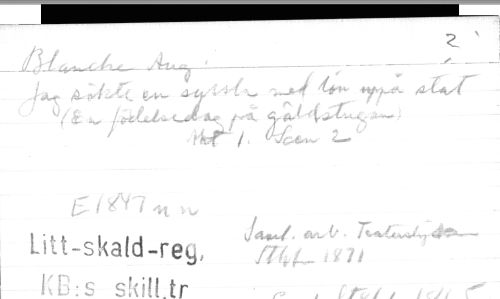 2
Blanche Aug.
Jag sökte en syssla med lön uppå stat
(En födelsedag på gäldstugan)
Akt 1. Scen 2
E 1847 n n
Saml. arb. Teaterstycken
Sthlm 1871
Litt-skald-reg,
KB:s skill.tr